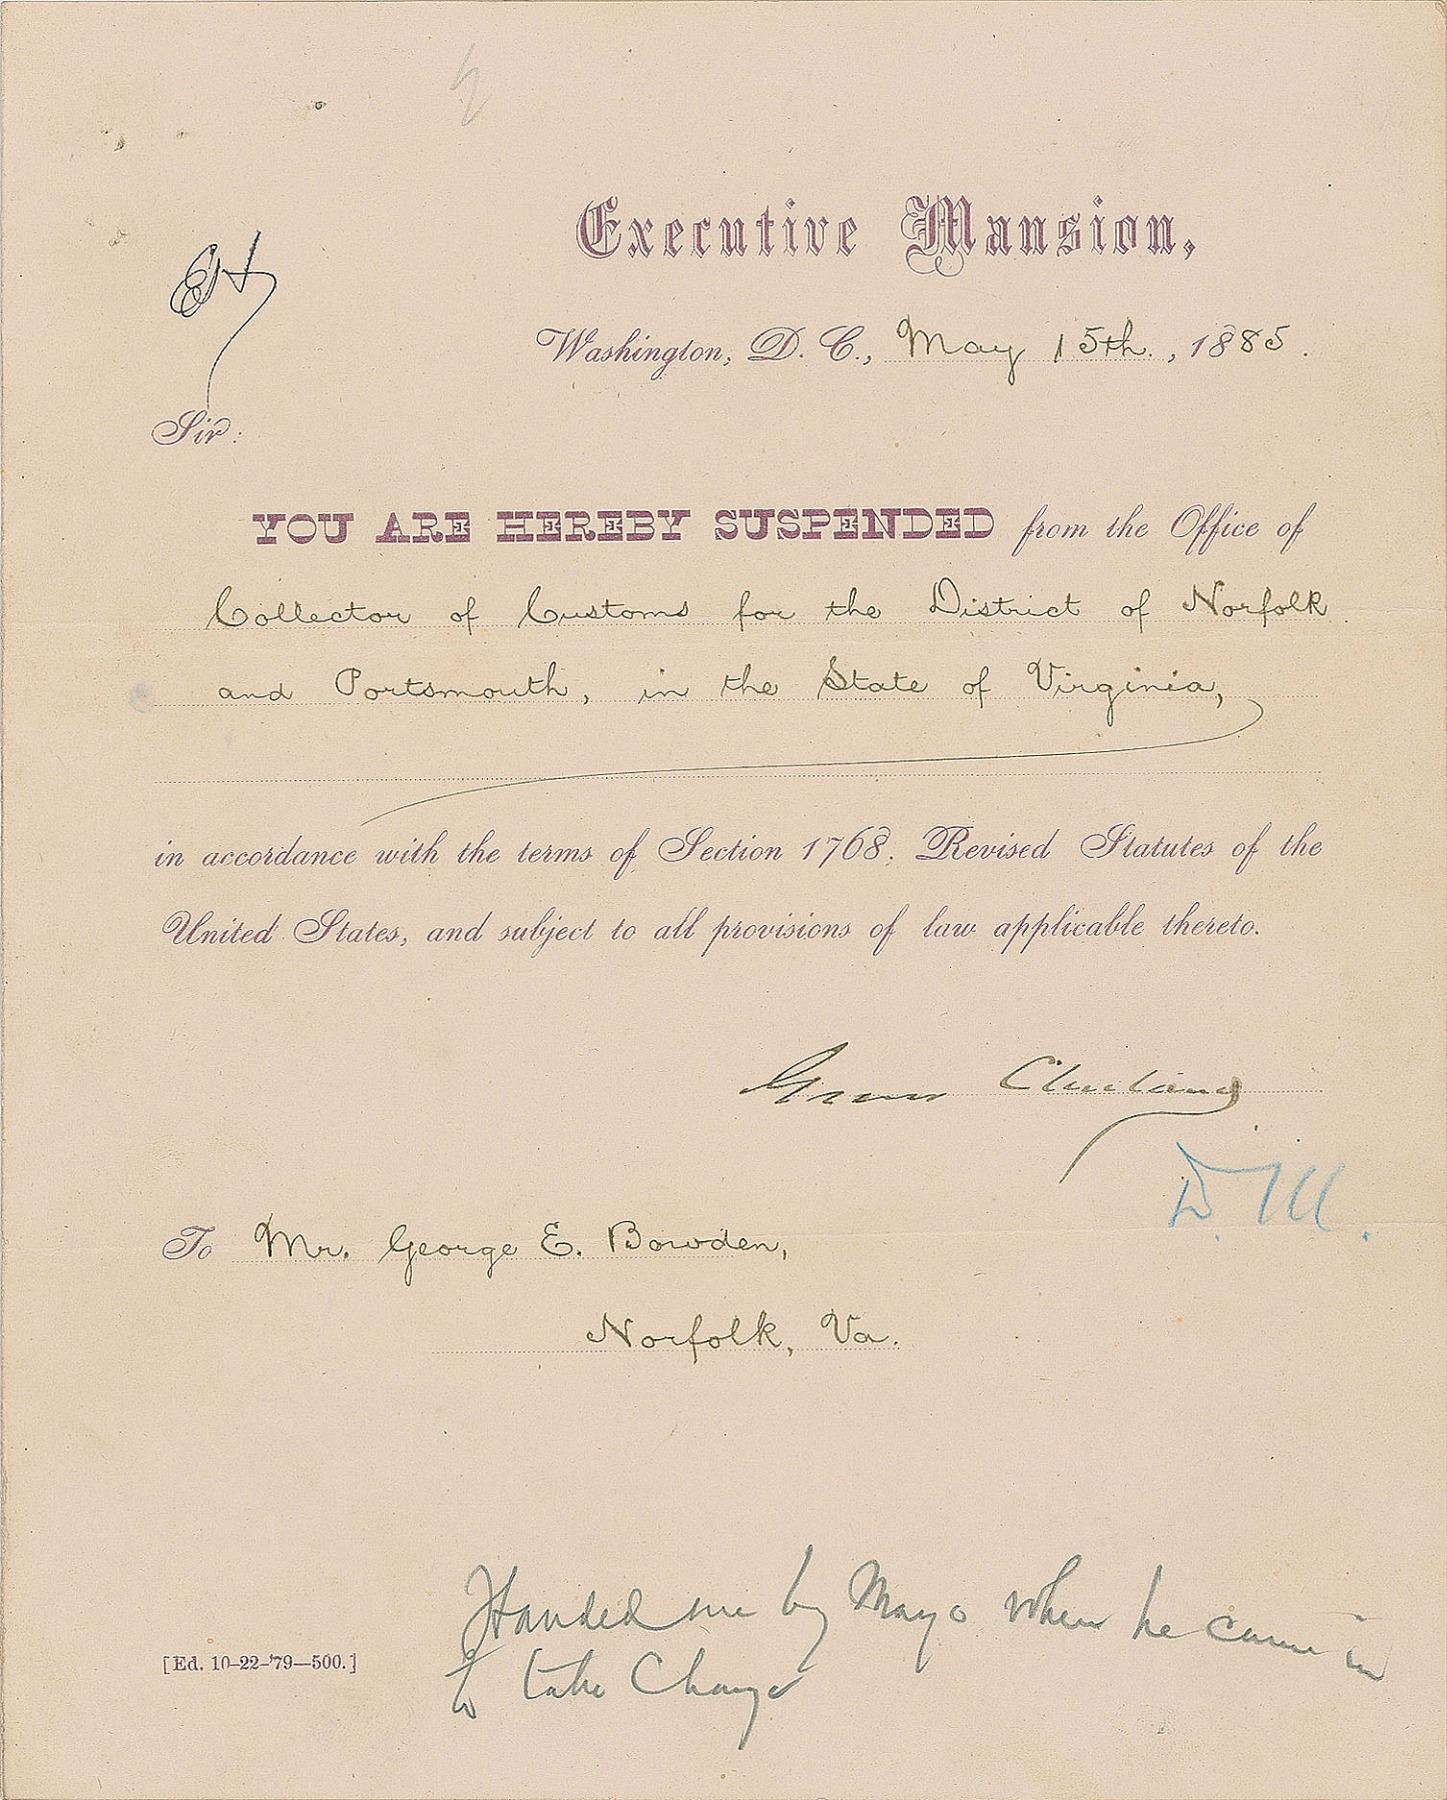 Executive Mansion,
Washington, D. C., May 15th., 1885.
Sir:
YOU ARE HEREBY SUSPENDED from the Office of
Collector of Customs for the District of Norfolk
and Portsmouth, in the State of Virginia,
in accordance with the terms of Section 1768, Revised Statutes of the
United States, and subject to all provisions of law applicable thereto.
Grover Cleveland
D. M.
To Mr. George E. Bowden,
Norfolk, Va.
Handed me by Mayo when he came in
to take Charge
[Ed. 10-22-'79—500.]